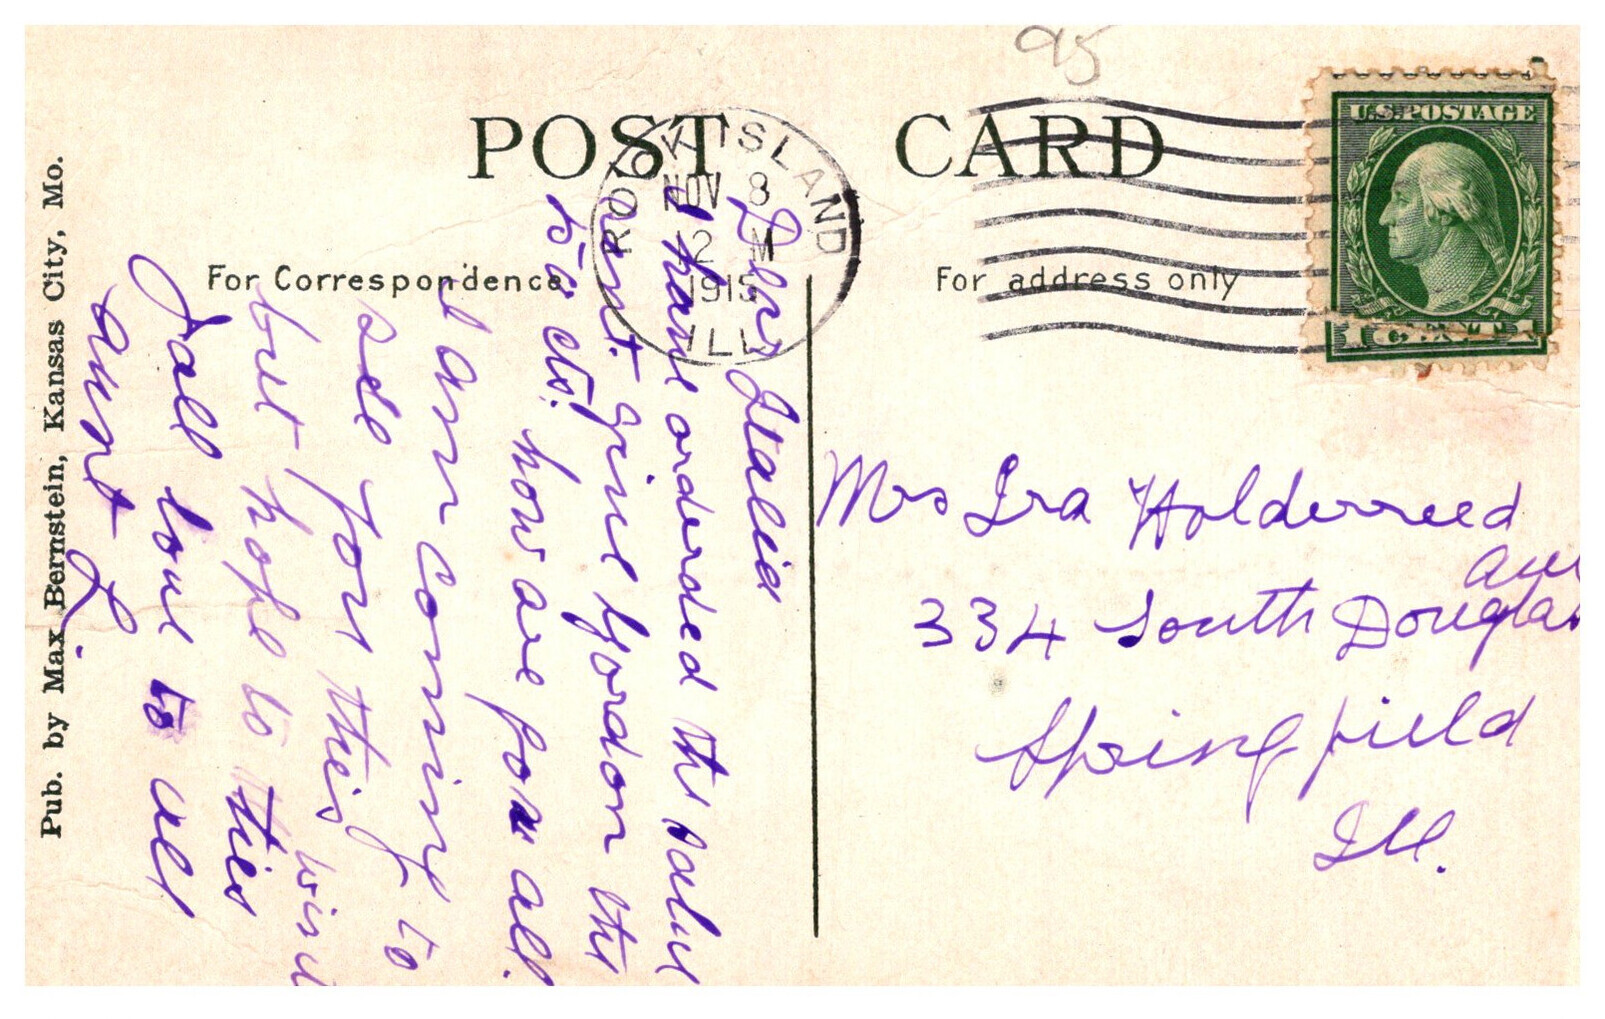 95
POST CARD
ROCK ISLAND
NOV 8
2 M
1915
ILL
U.S. POSTAGE
1 CENT 1
For Correspondence
For address only
Pub. by Max Bernstein, Kansas City, Mo.
Dear
I have ordered the salve
sent. give Gordon the
50 cts. how are you all.
I am coming to
see you this
but hope to this
wint
Jall love to all
aunt L.
Mrs Ira Holderreed
334 South Douglas
ave
Springfield
Ill.